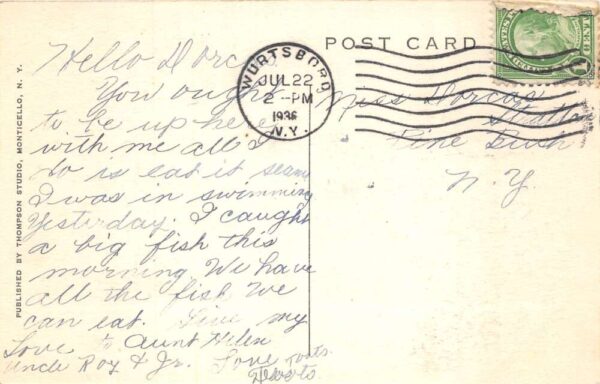 POST CARD
WURTSBORO
JUL 22
2-PM
1936
N.Y.
Hello Dorcas
You ought
to be up here
with me all I
do is eat it seems
I was in swimming
Yesterday. I caught
a big fish this
morning We have
all the fish we
can eat. Give my
Love to Aunt Helen
Uncle Roy & Jr. Love
Miss Dorcas
Pine Bush
N. Y.
PUBLISHED BY THOMPSON STUDIO, MONTICELLO, N. Y.